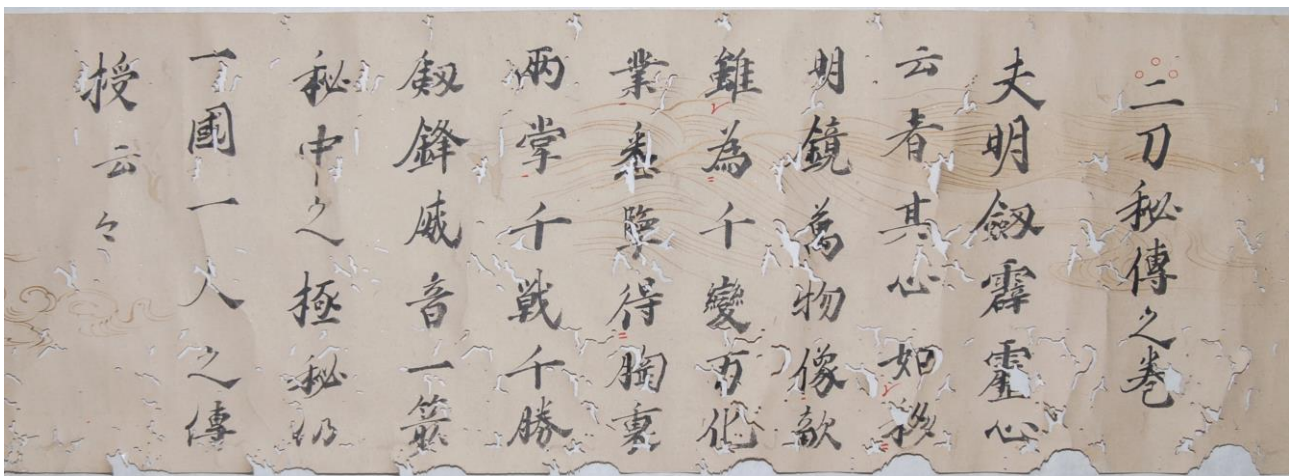 二刀秘傳之巻
夫明劔霹靂心
云者其心如移
明鏡萬物像敵
雖為千變万化
業悉得胸裏
両掌千戦千勝
劔鋒威音一箭
秘中之極秘仍
一國一人之傳
授云々